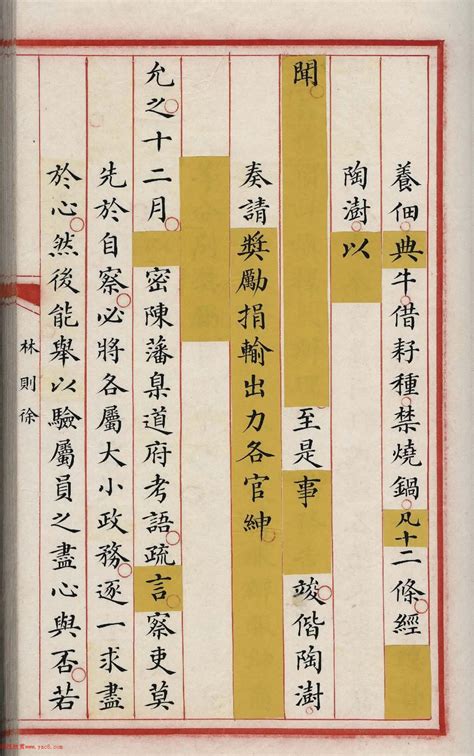 養佃典牛借耔種禁燒鍋凡十二條經
陶澍以
聞
至是事
竣偕陶澍
奏請獎勵捐輸出力各官紳
允之十二月
密陳藩臬道府考語疏言察吏莫
先於自察必將各屬大小政務逐一求盡
於心然後能舉以驗屬員之盡心與否若
林則徐